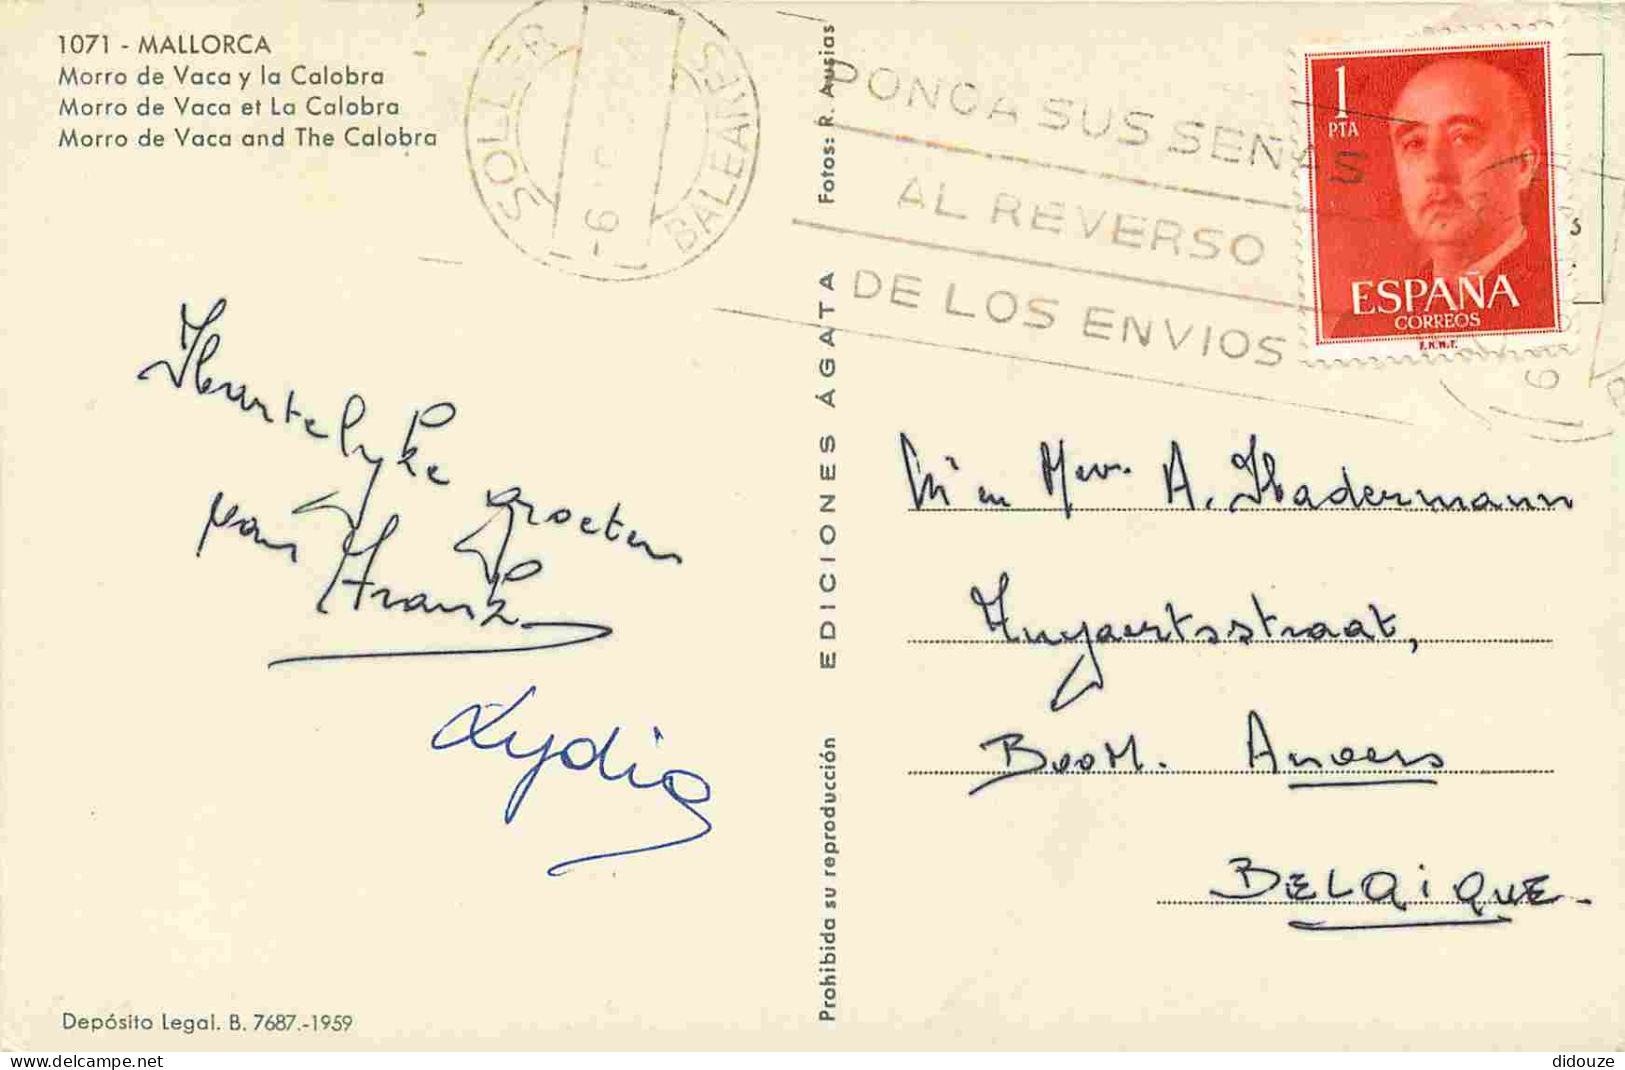 1071 - MALLORCA
Morro de Vaca y la Calobra
Morro de Vaca et La Calobra
Morro de Vaca and The Calobra
SOLLER
BALEARES
PONGA SUS SEÑAS
AL REVERSO
DE LOS ENVIOS
1
PTA
ESPAÑA
CORREOS
F.N.M.T.
S
Hartelyke groeten
van Frank
Lydia
Prohibida su reproducción EDICIONES ÁGATA Fotos: R. Ausias
Mr en Mev. A. Hadermann
straat,
Boom. Anvers
BELGIQUE.
Depósito Legal. B. 7687.-1959
didouze